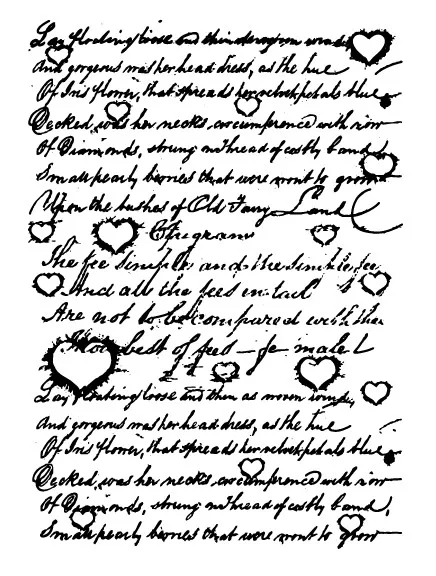 Lay floating loose and thin as woven wind
And gorgeous was her head dress, as the hue
Of Iris flower, that spreads her velvet petals blue
Decked, was her neck's circumference with row
Of Diamonds, strung on thread of costly band,
Small pearly berries that were wont to grow
Upon the bushes of Old Fairy Land
Epigram
The fee simple, and the simple fee
And all the fees in tail
Are not to be compared with thee
Thou best of fees – fe male!
Lay floating loose and thin as woven wind,
And gorgeous was her head dress, as the hue
Of Iris flower, that spreads her velvet petals blue
Decked, was her neck's circumference with row
Of Diamonds, strung on thread of costly band,
Small pearly berries that were wont to grow